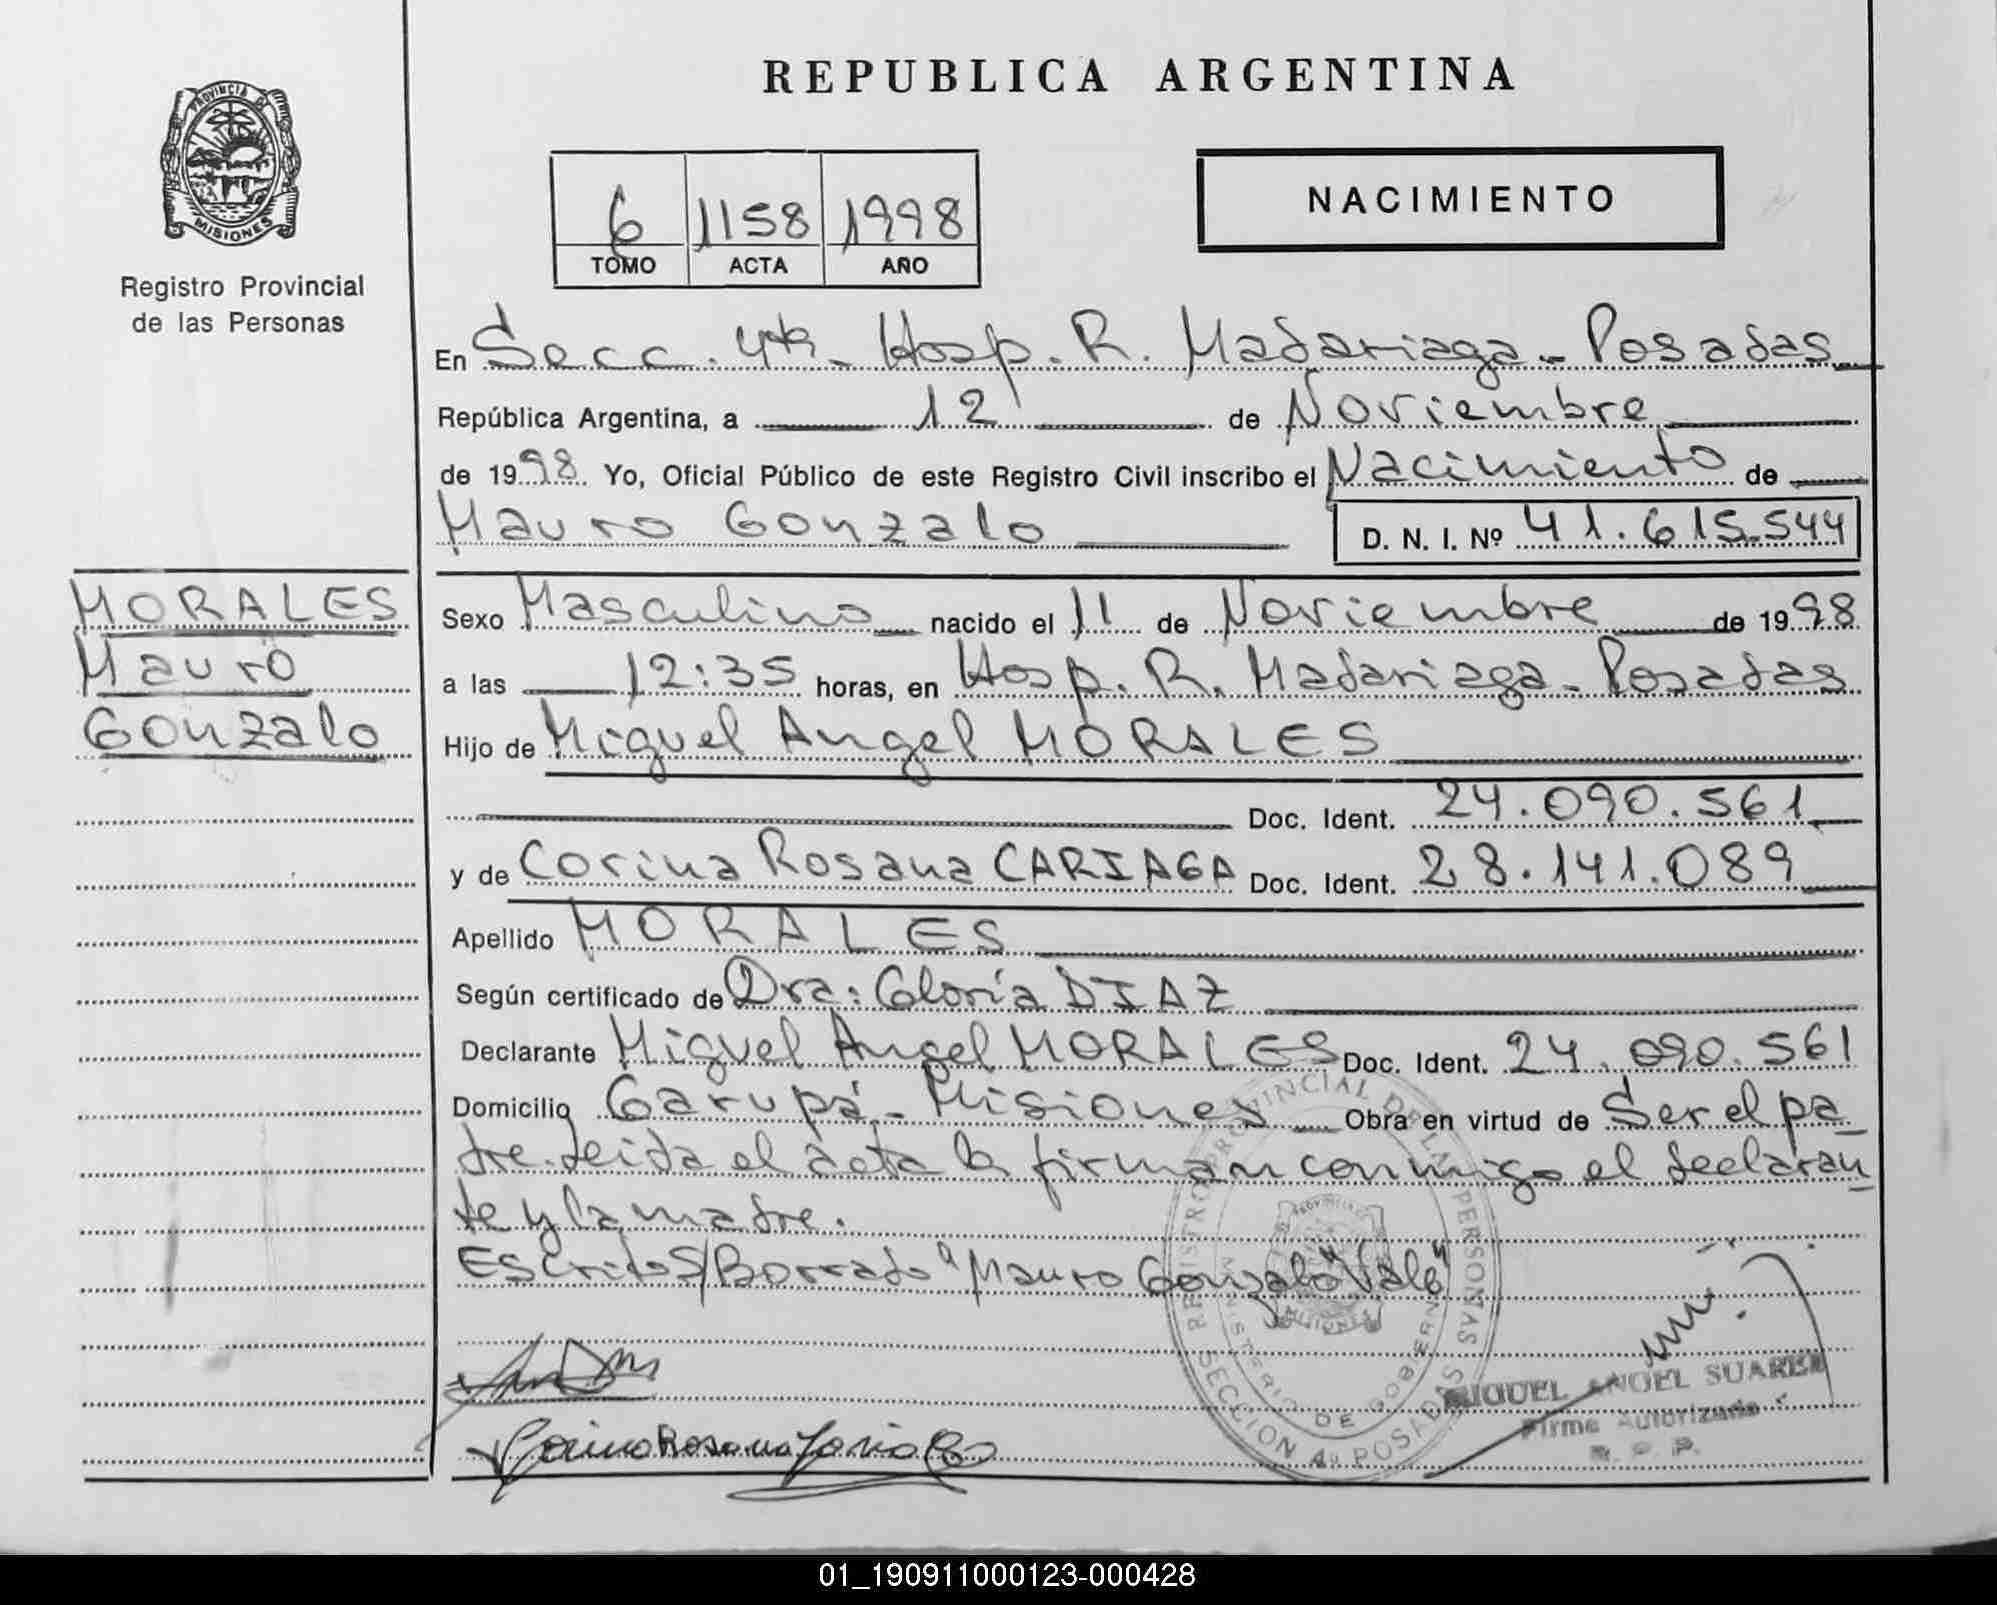 REPUBLICA ARGENTINA
PROVINCIA D
MISIONES
Registro Provincial
de las Personas
6 1158 1998
TOMO ACTA AÑO
NACIMIENTO
En Secc. 4ta - Hosp. R. Madariaga - Posadas
República Argentina, a 12 de Noviembre
de 1998 Yo, Oficial Público de este Registro Civil inscribo el Nacimiento de
Mauro Gonzalo D. N. I. Nº 41.615.544
MORALES
Mauro
Gonzalo
Sexo Masculino nacido el 11 de Noviembre de 1998
a las 12:35 horas, en Hosp. R. Madariaga - Posadas
Hijo de Miguel Angel MORALES
Doc. Ident. 24.090.561
y de Corina Rosana CARIAGA Doc. Ident. 28.141.089
Apellido MORALES
Según certificado de Dra: Gloria DIAZ
Declarante Miguel Angel MORALES Doc. Ident. 24.090.561
Domicilio Garupá - Misiones Obra en virtud de Ser el pa
dre. Leida el acta la firman conmigo el declaran
te y la madre.
Escrito S/Borrado "Mauro Gonzalo" Vale"
REGISTRO PROVINCIAL DE LAS PERSONAS
MINISTERIO DE GOBIERNO
SECCION 4a POSADAS
MIGUEL ANGEL SUAREZ
Firma Autorizada
R. P. P.
Corina Rosana
01_190911000123-000428